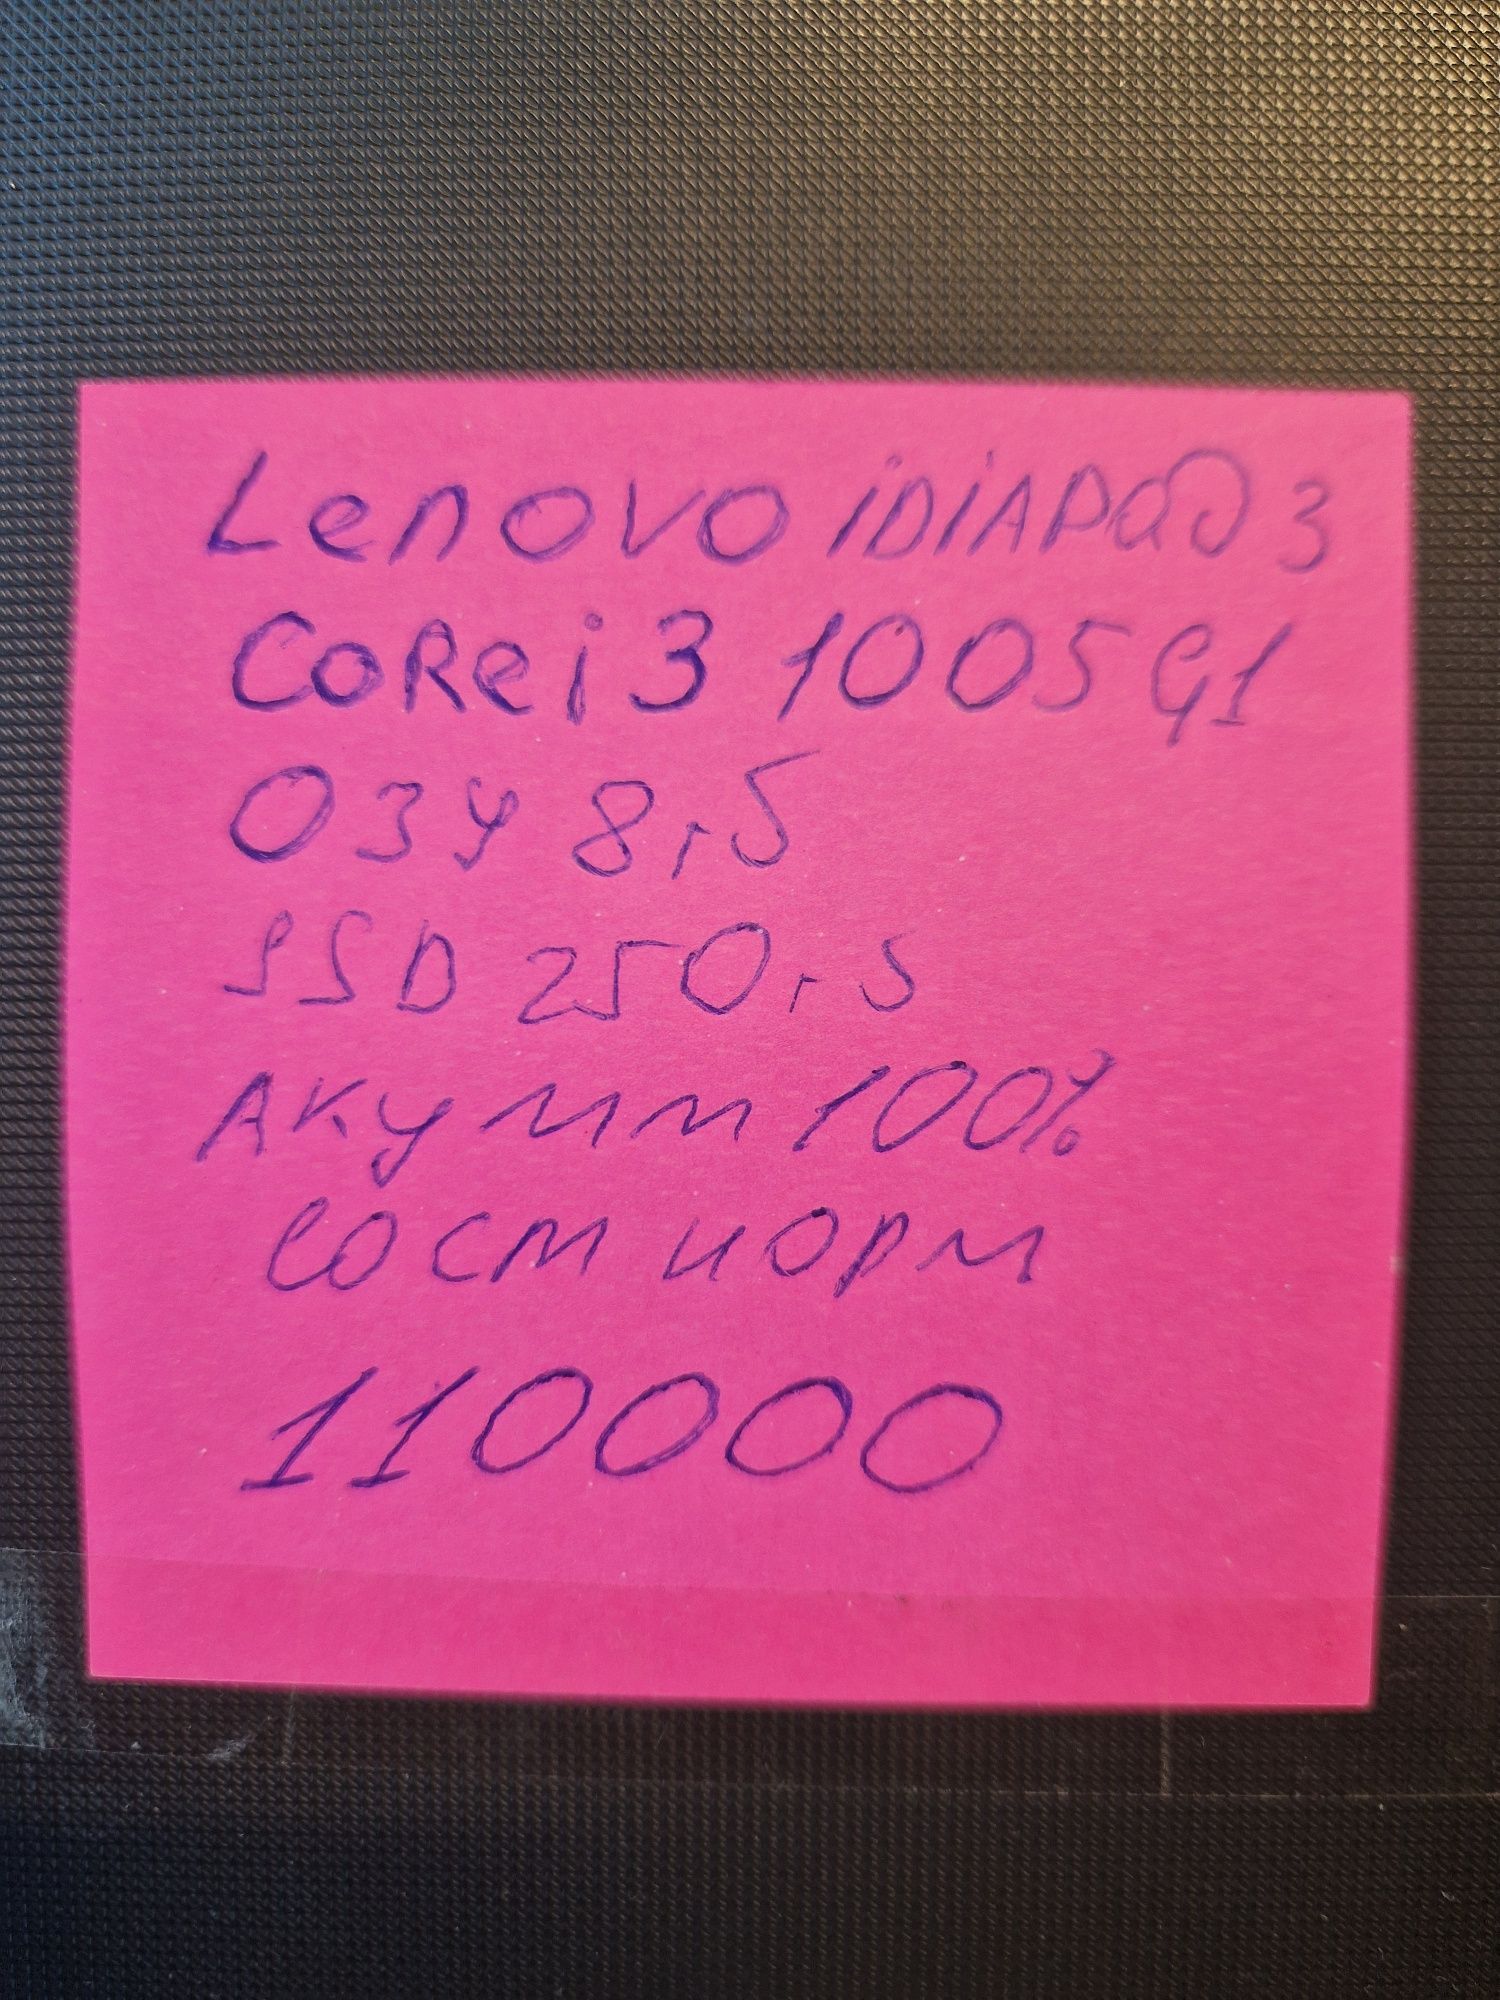 Lenovo iDiAPad 3
CoRe i3 1005G1
ОЗУ 8гб
SSD 250гб
Акумм 100%
Сост норм
110000